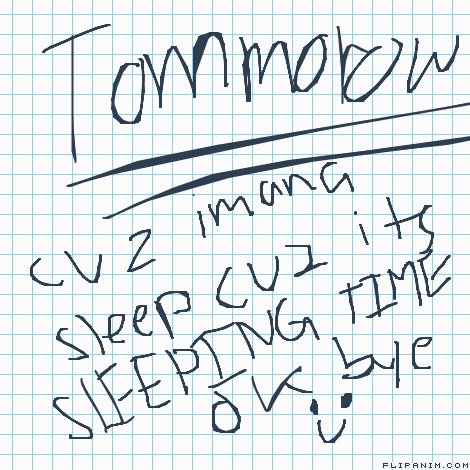 Tommobow
cuz imana
sleep cuz its
SLEEPING TIME
OK! bye
FLIPANIM.COM